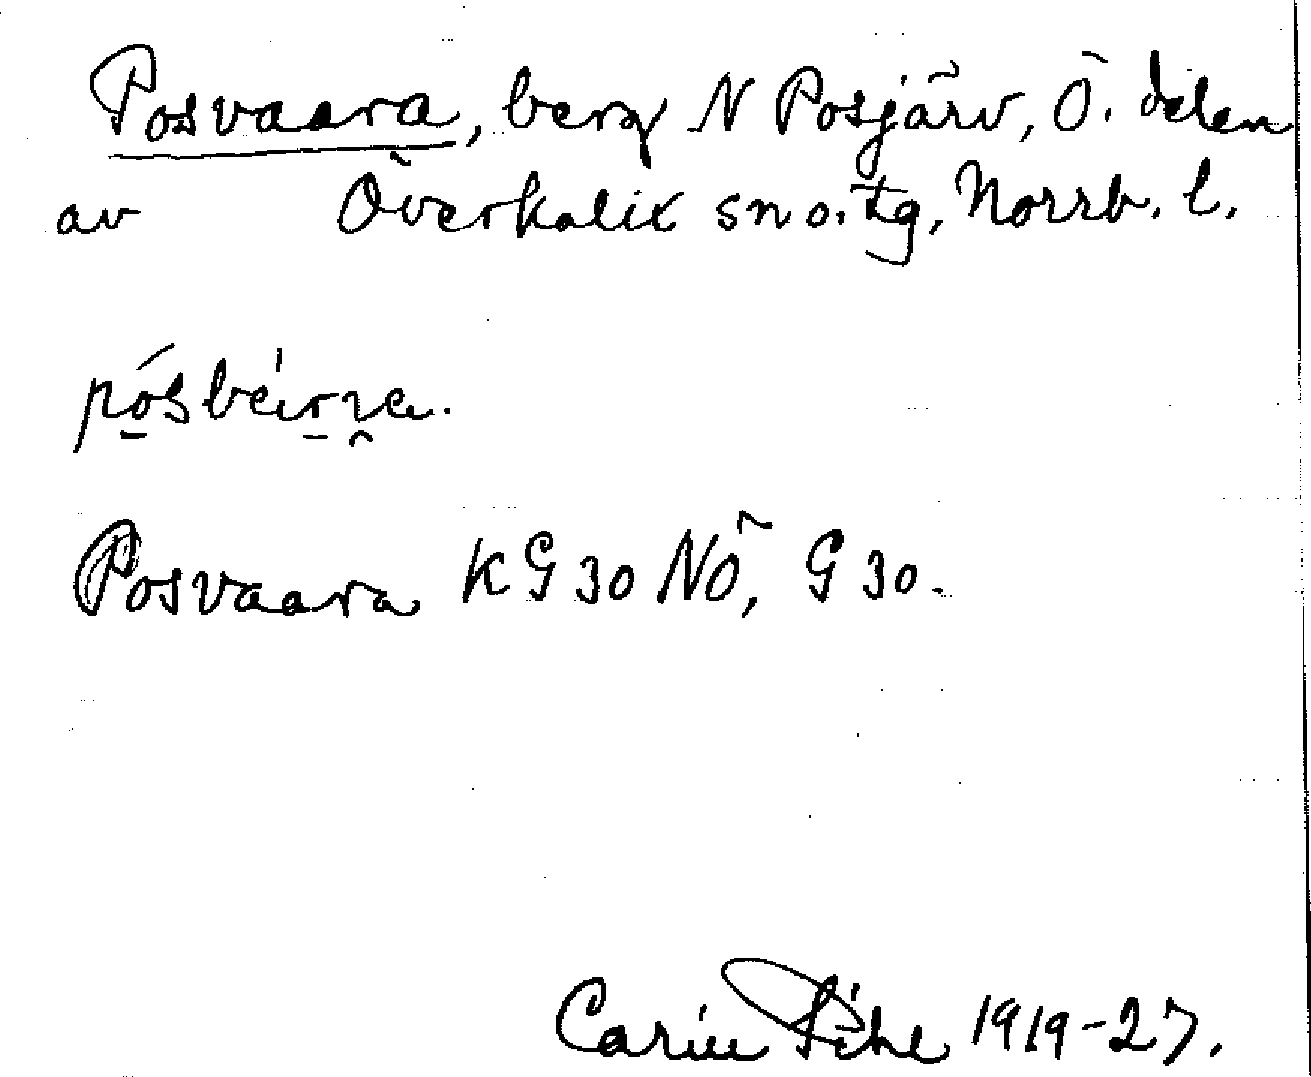 Posvaara, berg N Posjärv, Ö. delen
av Överkalix sn o. tg, Norrb. l.
Posvaara KG 30 NÖ, G 30.
Carin Pihl 1919-27.